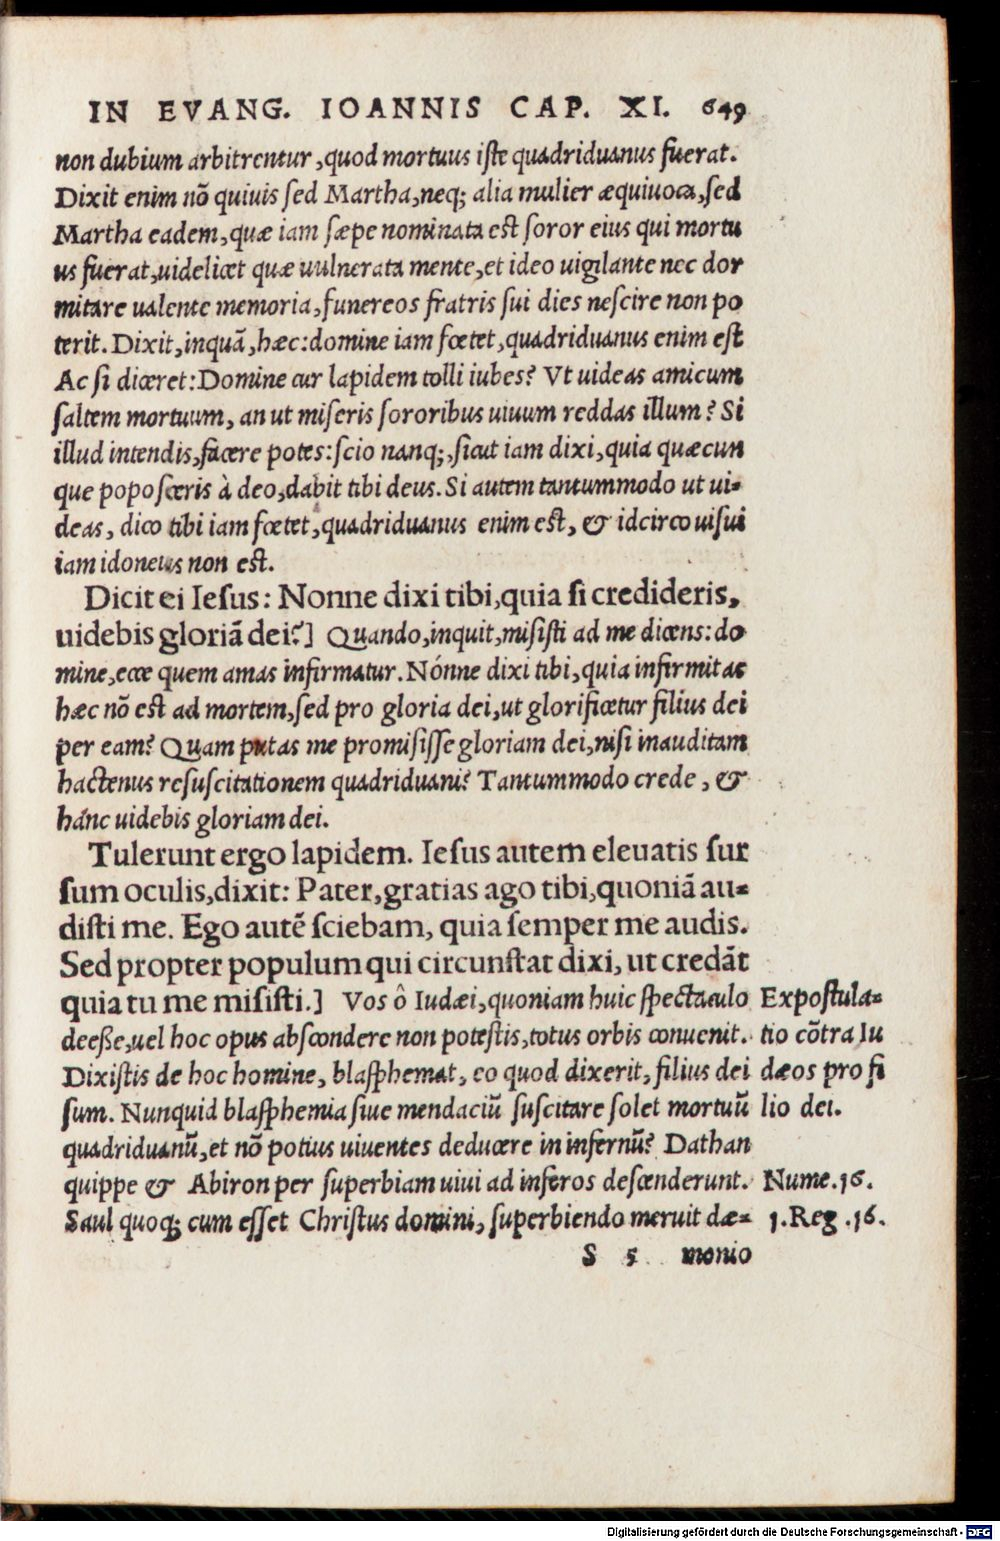 IN EVANG. IOANNIS CAP. XI. 649
non dubium arbitrentur, quod mortuus iste quadriduanus fuerat.
Dixit enim nõ quiuis sed Martha, neq; alia mulier æquiuoca, sed
Martha eadem, quæ iam sæpe nominata est soror eius qui mortu
us fuerat, uidelicet quæ uulnerata mente, et ideo uigilante nec dor
mitare ualente memoria, funereos fratris sui dies nescire non po
terit. Dixit, inquã, hæc: domine iam fœtet, quadriduanus enim est
Ac si diceret: Domine cur lapidem tolli iubes? Vt uideas amicum
saltem mortuum, an ut miseris sororibus uiuum reddas illum? Si
illud intendis, facere potes: scio nanq;, sicut iam dixi, quia quæcun
que poposceris à deo, dabit tibi deus. Si autem tantummodo ut ui-
deas, dico tibi iam fœtet, quadriduanus enim est, & idcirco uisui
iam idoneus non est.
Dicit ei Iesus: Nonne dixi tibi, quia si credideris,
uidebis gloriã dei?] Quando, inquit, misisti ad me dicens: do
mine, ecce quem amas infirmatur. Nónne dixi tibi, quia infirmitas
hæc nõ est ad mortem, sed pro gloria dei, ut glorificetur filius dei
per eam? Quam putas me promisisse gloriam dei, nisi inauditam
hactenus resuscitationem quadriduani? Tantummodo crede, &
hánc uidebis gloriam dei.
Tulerunt ergo lapidem. Iesus autem eleuatis sur
sum oculis, dixit: Pater, gratias ago tibi, quoniã au-
disti me. Ego autẽ sciebam, quia semper me audis.
Sed propter populum qui circunstat dixi, ut credãt
quia tu me misisti.] Vos ô Iudæi, quoniam huic spectaculo
deesse, uel hoc opus abscondere non potestis, totus orbis conuenit.
Dixistis de hoc homine, blasphemat, eo quod dixerit, filius dei
sum. Nunquid blasphemia siue mendaciũ suscitare solet mortuũ
quadriduanũ, et nõ potius uiuentes deducere in infernũ? Dathan
quippe & Abiron per superbiam uiui ad inferos descenderunt.
Saul quoq; cum esset Christus domini, superbiendo meruit dæ-
Expostula-
tio cõtra Iu
dæos pro fi
lio dei.
Nume.16.
1.Reg.16.
S 5 monio
Digitalisierung gefördert durch die Deutsche Forschungsgemeinschaft - DFG